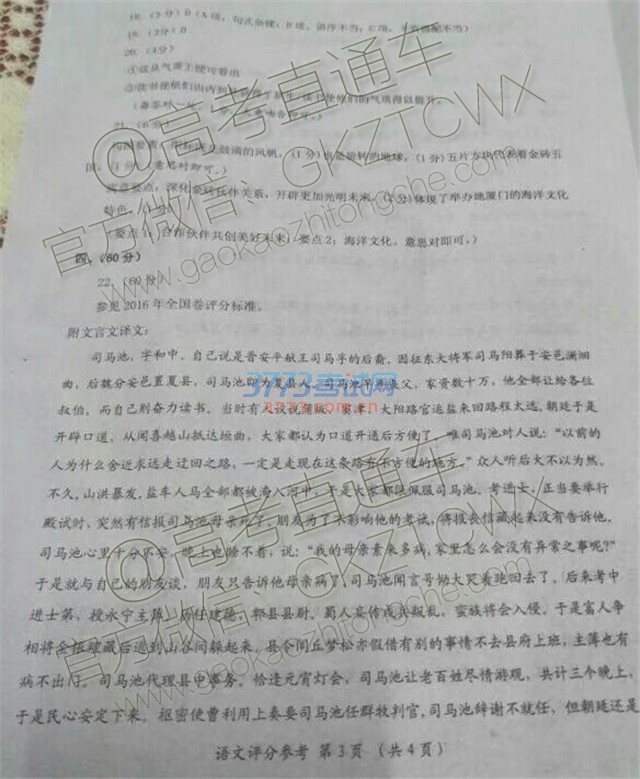 18.（3分）D（A项，句式杂糅；B项，语序不当；C项，
19.（3分）D
20.（4分）
①读书使
官方微信：GKZTCWX
@高考直通车
www.gaokaozhitongche.com
（1分）也是旋转的地球，（1分）五片方块代表着金砖五
国。（1分）（意思对即可。）
寓意要点：深化金砖伙伴关系，开辟更加光明未来，（1分）体现了举办地厦门的海洋文化
特色。（1分）
（要点1：合作伙伴共创美好未来；要点2：海洋文化。意思对即可。）
四、（60分）
22.（60分）
参见2016年全国卷评分标准。
附文言文译文：
司马池，字和中，自己说是晋安平献王司马孚的后裔，因征东大将军司马阳葬于安邑澜洄
曲，后魏分安邑置夏县，司马池即为夏县人。司马池早年丧父，家资数十万，他全部让给各位
叔伯，而自己则奋力读书。当时有人议说蒲坂、窦津、大阳路官运盐来回路程太远，朝廷于是
开辟口道，从闻喜越山抵达垣曲，大家都认为口道开通后方便了。唯司马池对人说：“以前的
人为什么舍近求远走迂回之路，一定是走现在这条路有不方便的地方。”众人听后大不以为然。
不久，山洪暴发，盐车人马全部都被淹入河中，于是大家都很佩服司马池。考进士，正当要举行
殿试时，突然有信报司马池母亲死了，朋友为了不影响他的考试，将报丧信藏起来没有告诉他。
司马池心里十分不安，晚上也睡不着，说：“我的母亲素来多病，家里怎么会没有异常之事呢？”
于是就与自己的朋友谈，朋友只告诉他母亲病了，司马池闻言号恸大哭着跑回去了。后来考中
进士第，授永宁主薄。历任建德、郫县县尉。蜀人妄传戍兵叛乱，蛮族将会入侵，于是富人争
相将金银埋藏后逃到山谷间躲起来。县令闾丘梦松亦假借有别的事情不去县府上班，主薄也有
病不出门。司马池代理县中事务。恰逢元宵灯会，司马池让老百姓尽情游观，共计三个晚上，
于是民心安定下来。枢密使曹利用上奏要司马池任群牧判官，司马池辞谢不就任，但朝廷还是
3773考试网
语文评分参考 第3页（共4页）